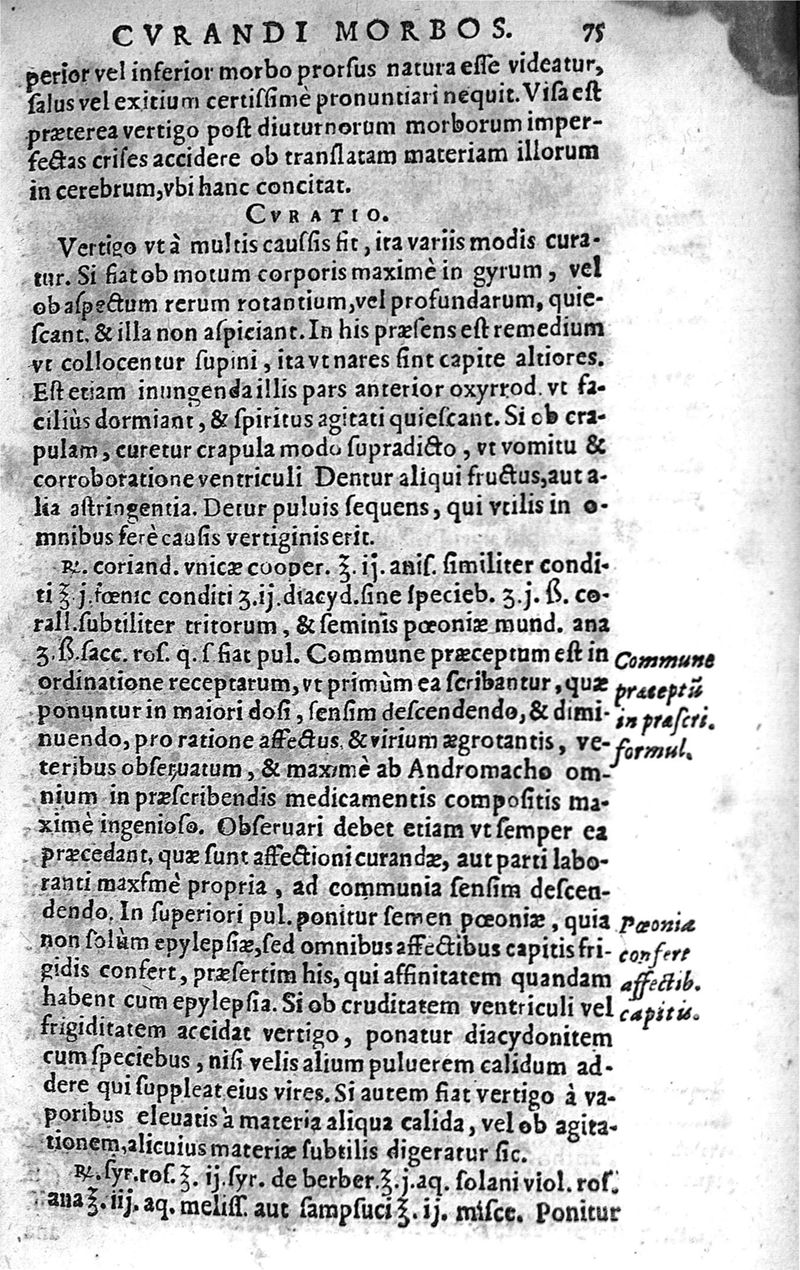 CVRANDI MORBOS. 75
perior vel inferior morbo prorſus natura eſſe videatur,
ſalus vel exitium certiſſimè pronuntiari nequit. Viſa eſt
præterea vertigo poſt diuturnorum morborum imper-
fectas criſes accidere ob tranſlatam materiam illorum
in cerebrum, vbi hanc concitat.
CVRATIO.
Vertigo vt à multis cauſſis fit, ita variis modis cura-
tur. Si fiat ob motum corporis maximè in gyrum, vel
ob aſpectum rerum rotantium, vel profundarum, quie-
ſcant. & illa non aſpiciant. In his præſens eſt remedium
vt collocentur ſupini, ita vt nares ſint capite altiores.
Eſt etiam inungenda illis pars anterior oxyrrod. vt fa-
ciliùs dormiant, & ſpiritus agitati quieſcant. Si ob cra-
pulam, curetur crapula modo ſupradicto, vt vomitu &
corroboratione ventriculi Dentur aliqui fructus, aut a-
lia aſtringentia. Detur puluis ſequens, qui vtilis in o-
mnibus ferè cauſis vertiginis erit.
℞. coriand. vnicæ cooper. ℥. ij. aniſ. ſimiliter condi-
ti ℥. j. fœnic conditi ʒ. ij. diacyd. ſine ſpecieb. ʒ. j. ß. co-
rall. ſubtiliter tritorum, & ſeminis pœoniæ mund. ana
ʒ. ß. ſacc. roſ. q. ſ fiat pul. Commune præceptum eſt in
ordinatione receptarum, vt primùm ea ſcribantur, quæ
ponuntur in maiori doſi, ſenſim deſcendendo, & dimi-
nuendo, pro ratione affectus. & virium ægrotantis, ve-
teribus obſeruatum, & maximè ab Andromacho om-
nium in præſcribendis medicamentis compoſitis ma-
ximè ingenioſo. Obſeruari debet etiam vt ſemper ea
præcedant, quæ ſunt affectioni curandæ, aut parti labo-
ranti maxſmè propria, ad communia ſenſim deſcen-
dendo. In ſuperiori pul. ponitur ſemen pœoniæ, quia
non ſolùm epylepſiæ, ſed omnibus affectibus capitis fri-
gidis confert, præſertim his, qui affinitatem quandam
habent cùm epylepſia. Si ob cruditatem ventriculi vel
frigiditatem accidat vertigo, ponatur diacydonitem
cum ſpeciebus, niſi velis alium puluerem calidum ad-
dere qui ſuppleat eius vires. Si autem fiat vertigo à va-
poribus eleuatis à materia aliqua calida, vel ob agita-
tionem, alicuius materiæ ſubtilis digeratur ſic.
℞. ſyr. roſ. ℥. ij. ſyr. de berber. ℥. j. aq. ſolani viol. roſ.
ana ℥. iij. aq. meliſſ. aut ſampſuci ℥. ij. miſce. Ponitur
Commune
præceptũ
in præſcri.
formul.
Pœonia
confert
affectib.
capitis.